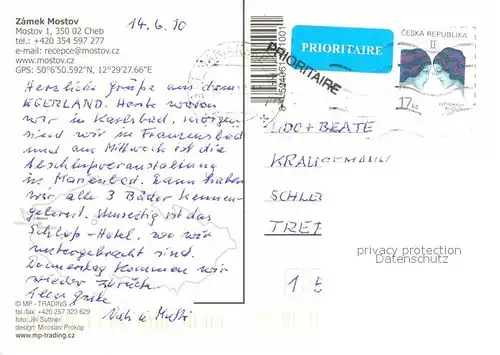 Zámek Mostov
Mostov 1, 350 02 Cheb
tel.: +420 354 597 277
e-mail: recepce@mostov.cz
www.mostov.cz
GPS: 50°6'50.592"N, 12°29'27.66"E
14.6.10
Herzliche Grüße aus dem
EGERLAND. Heute waren
wir in Karlsbad, morgen
sind wir in Franzensbad
und am Mittwoch ist die
Abschlußveranstaltung
in Marienbad. Dann haben
wir alle 3 Bäder kennen-
gelernt. ist das
Schloß-Hotel, wo wir
untergebracht sind.
Donnerstag kommen wir
wieder zurück.
© MP - TRADING
tel./fax: +420 257 323 629
foto: Jiří Suttner
design: Miroslav Prokop
www.mp-trading.cz
PRIORITAIRE
PRIORITAIRE
ČESKÁ REPUBLIKA
17 Kč
UDO + BEATE
privacy protection
Datenschutz